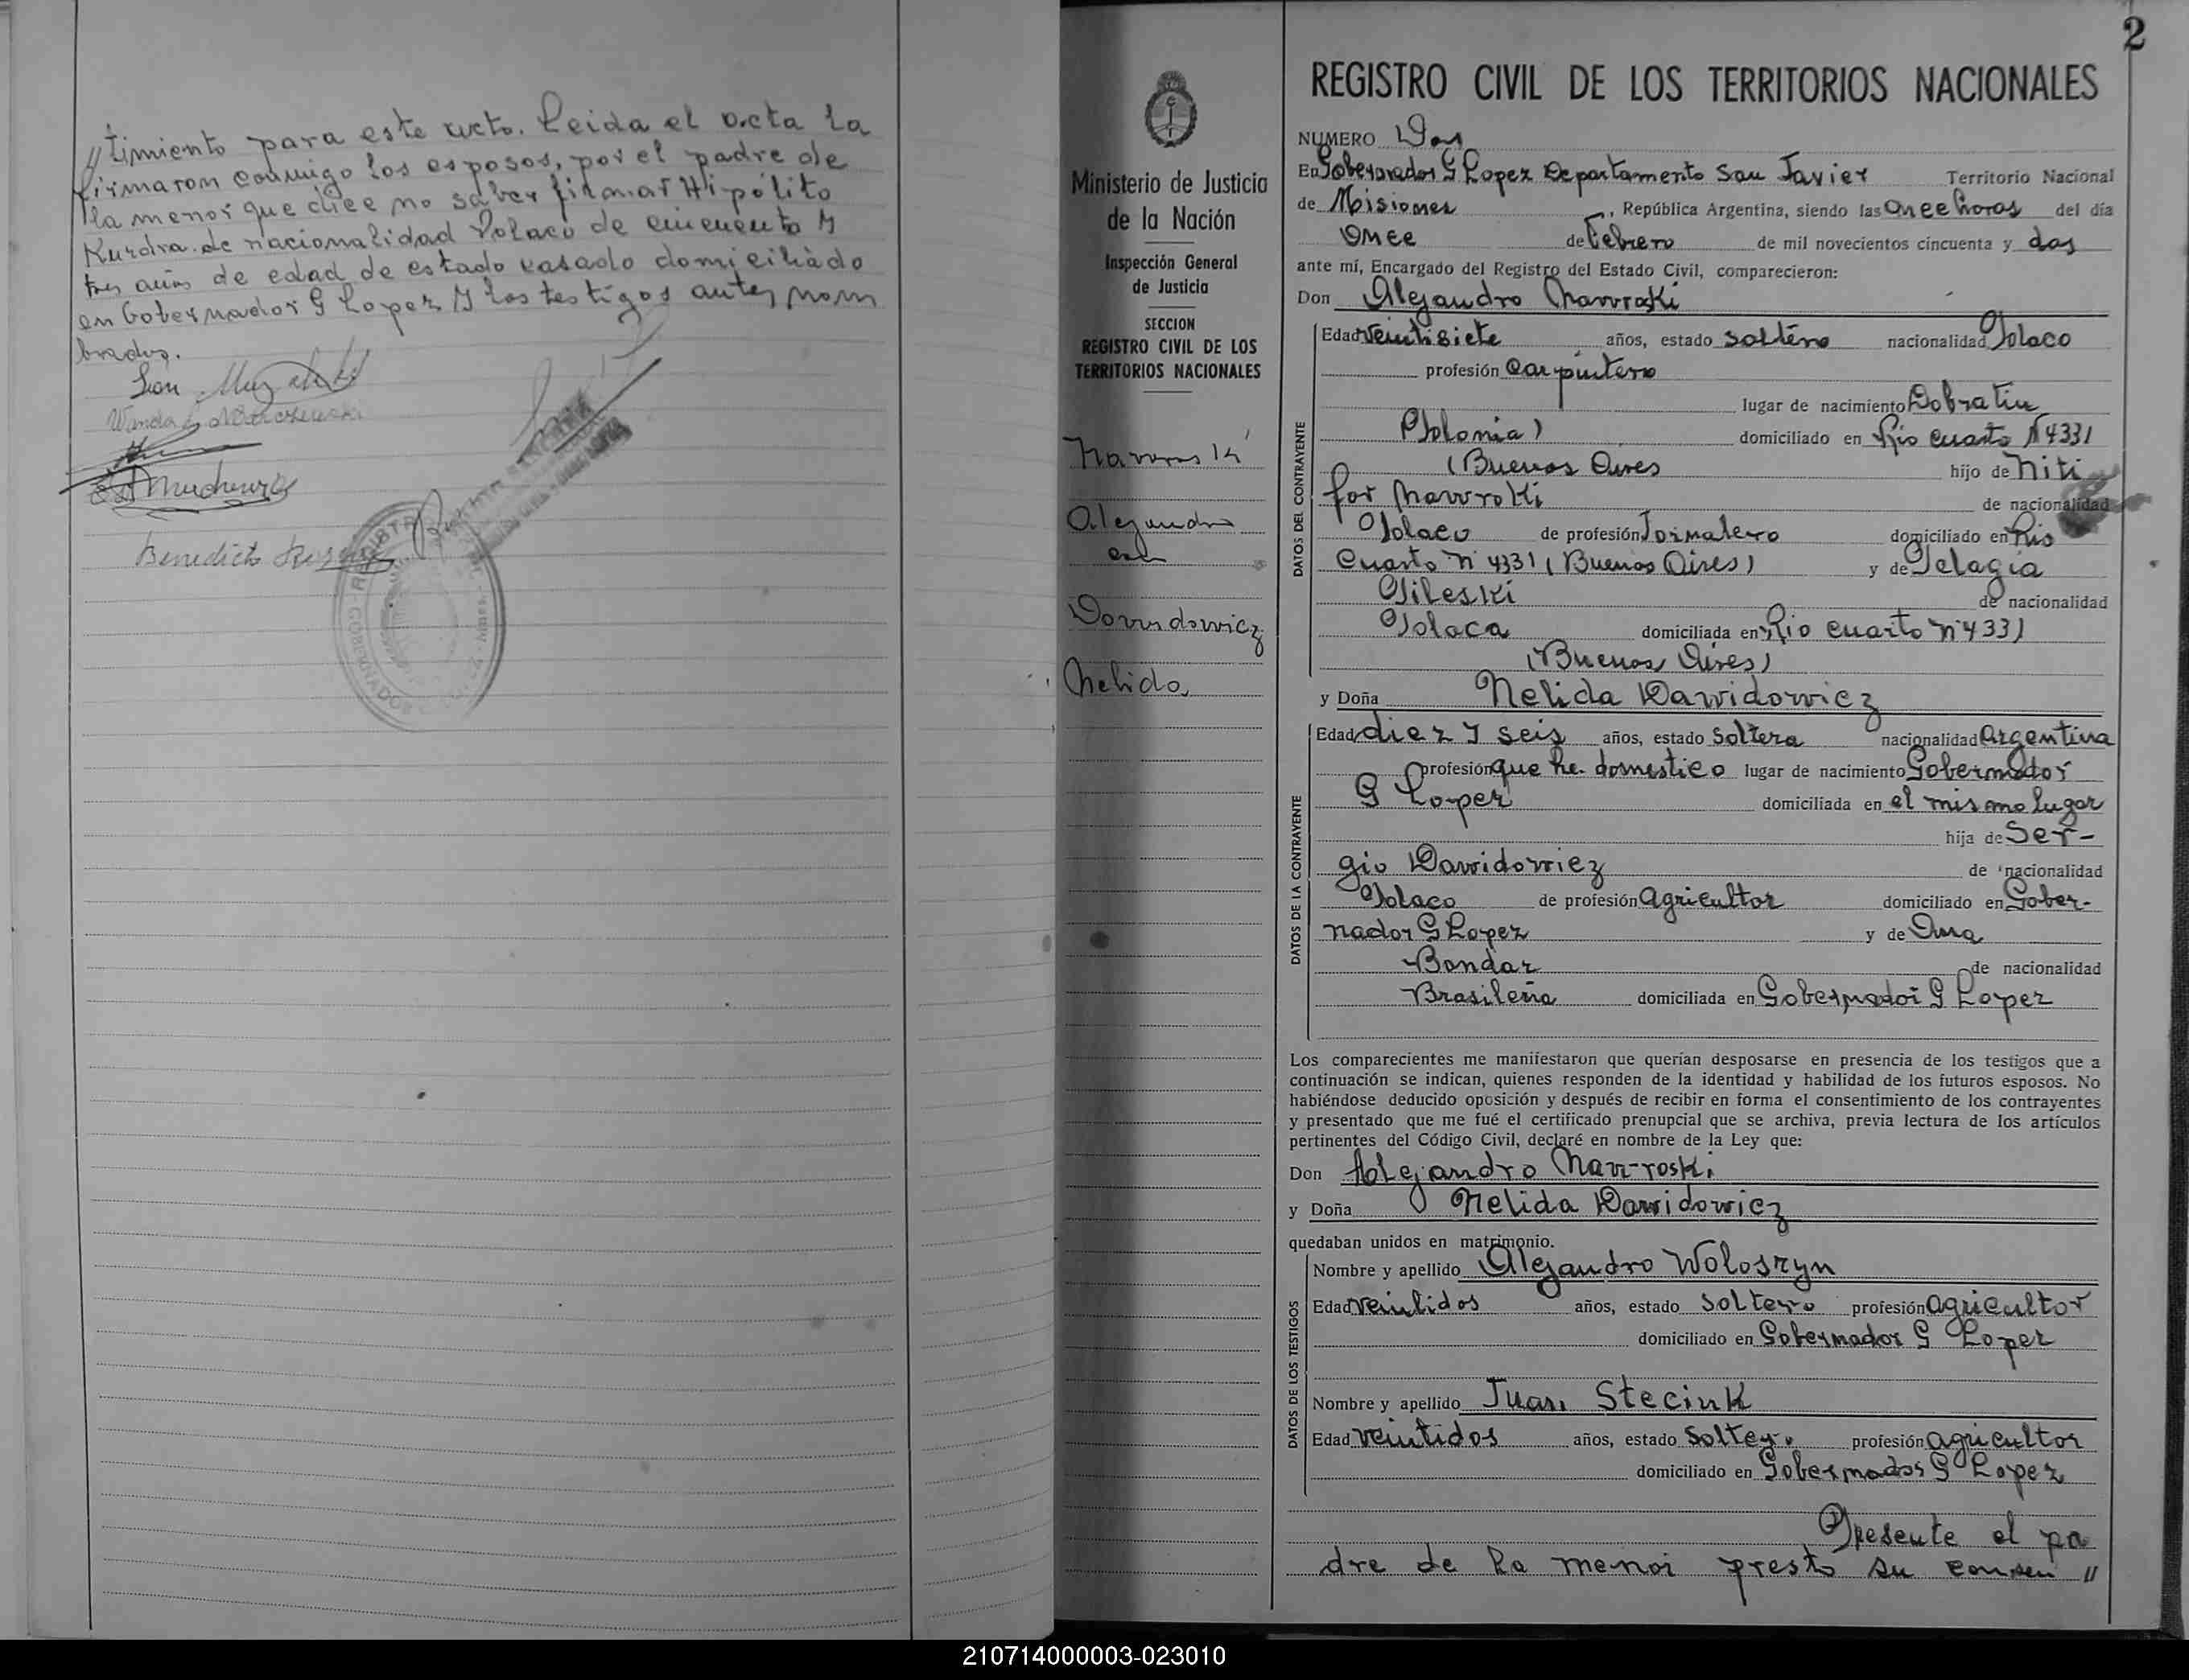 //timiento para este acto. Leida el acta la
firmaron conmigo los esposos, por el padre de
la menor que dice no saber firmar Hipólito
Kurdra de nacionalidad Polaco de cincuenta y
tres años de edad de estado casado domiciliado
en Gobernador G Lopez y los testigos antes nom
brados.
León
Wanda
Benedicto
2
REGISTRO CIVIL DE LOS TERRITORIOS NACIONALES
Ministerio de Justicia
de la Nación
Inspección General
de Justicia
SECCION
REGISTRO CIVIL DE LOS
TERRITORIOS NACIONALES
Alejandro
con
Dawidowicz
Nelida
NUMERO Dos
En Gobernador G Lopez Departamento San Javier Territorio Nacional
de Misiones, República Argentina, siendo las once horas del día
once de Febrero de mil novecientos cincuenta y dos
ante mí, Encargado del Registro del Estado Civil, comparecieron:
Don Alejandro Nawroski
DATOS DEL CONTRAYENTE
Edad veintisiete años, estado soltero nacionalidad Polaco
profesión Carpintero
lugar de nacimiento Dobratin
(Polonia) domiciliado en Rio Cuarto N 4331
(Buenos Aires hijo de Niti
for Nawroski de nacionalidad
Polaco de profesión Jornalero domiciliado en Rio
Cuarto N 4331 (Buenos Aires) y de Pelagia
Pileski de nacionalidad
Polaca domiciliada en Rio Cuarto N 4331
(Buenos Aires)
y Doña Nelida Dawidowicz
DATOS DE LA CONTRAYENTE
Edad diez y seis años, estado soltera nacionalidad Argentina
profesión que he. domestico lugar de nacimiento Gobernador
G Lopez domiciliada en el mismo lugar
hija de Ser-
gio Dawidowicz de nacionalidad
Polaco de profesión Agricultor domiciliado en Gober-
nador G Lopez y de Ana
Bondar de nacionalidad
Brasileña domiciliada en Gobernador G Lopez
Los comparecientes me manifestaron que querían desposarse en presencia de los testigos que a
continuación se indican, quienes responden de la identidad y habilidad de los futuros esposos. No
habiéndose deducido oposición y después de recibir en forma el consentimiento de los contrayentes
y presentado que me fué el certificado prenupcial que se archiva, previa lectura de los artículos
pertinentes del Código Civil, declaré en nombre de la Ley que:
Don Alejandro Naw-roski
y Doña Nelida Dawidowicz
quedaban unidos en matrimonio.
DATOS DE LOS TESTIGOS
Nombre y apellido Alejandro Woloszyn
Edad veintidos años, estado soltero profesión agricultor
domiciliado en Gobernador G Lopez
Nombre y apellido Juan Steciuk
Edad veintidos años, estado soltero profesión agricultor
domiciliado en Gobernador G Lopez
Presente el pa
dre de la menor presto su consen //
210714000003-023010